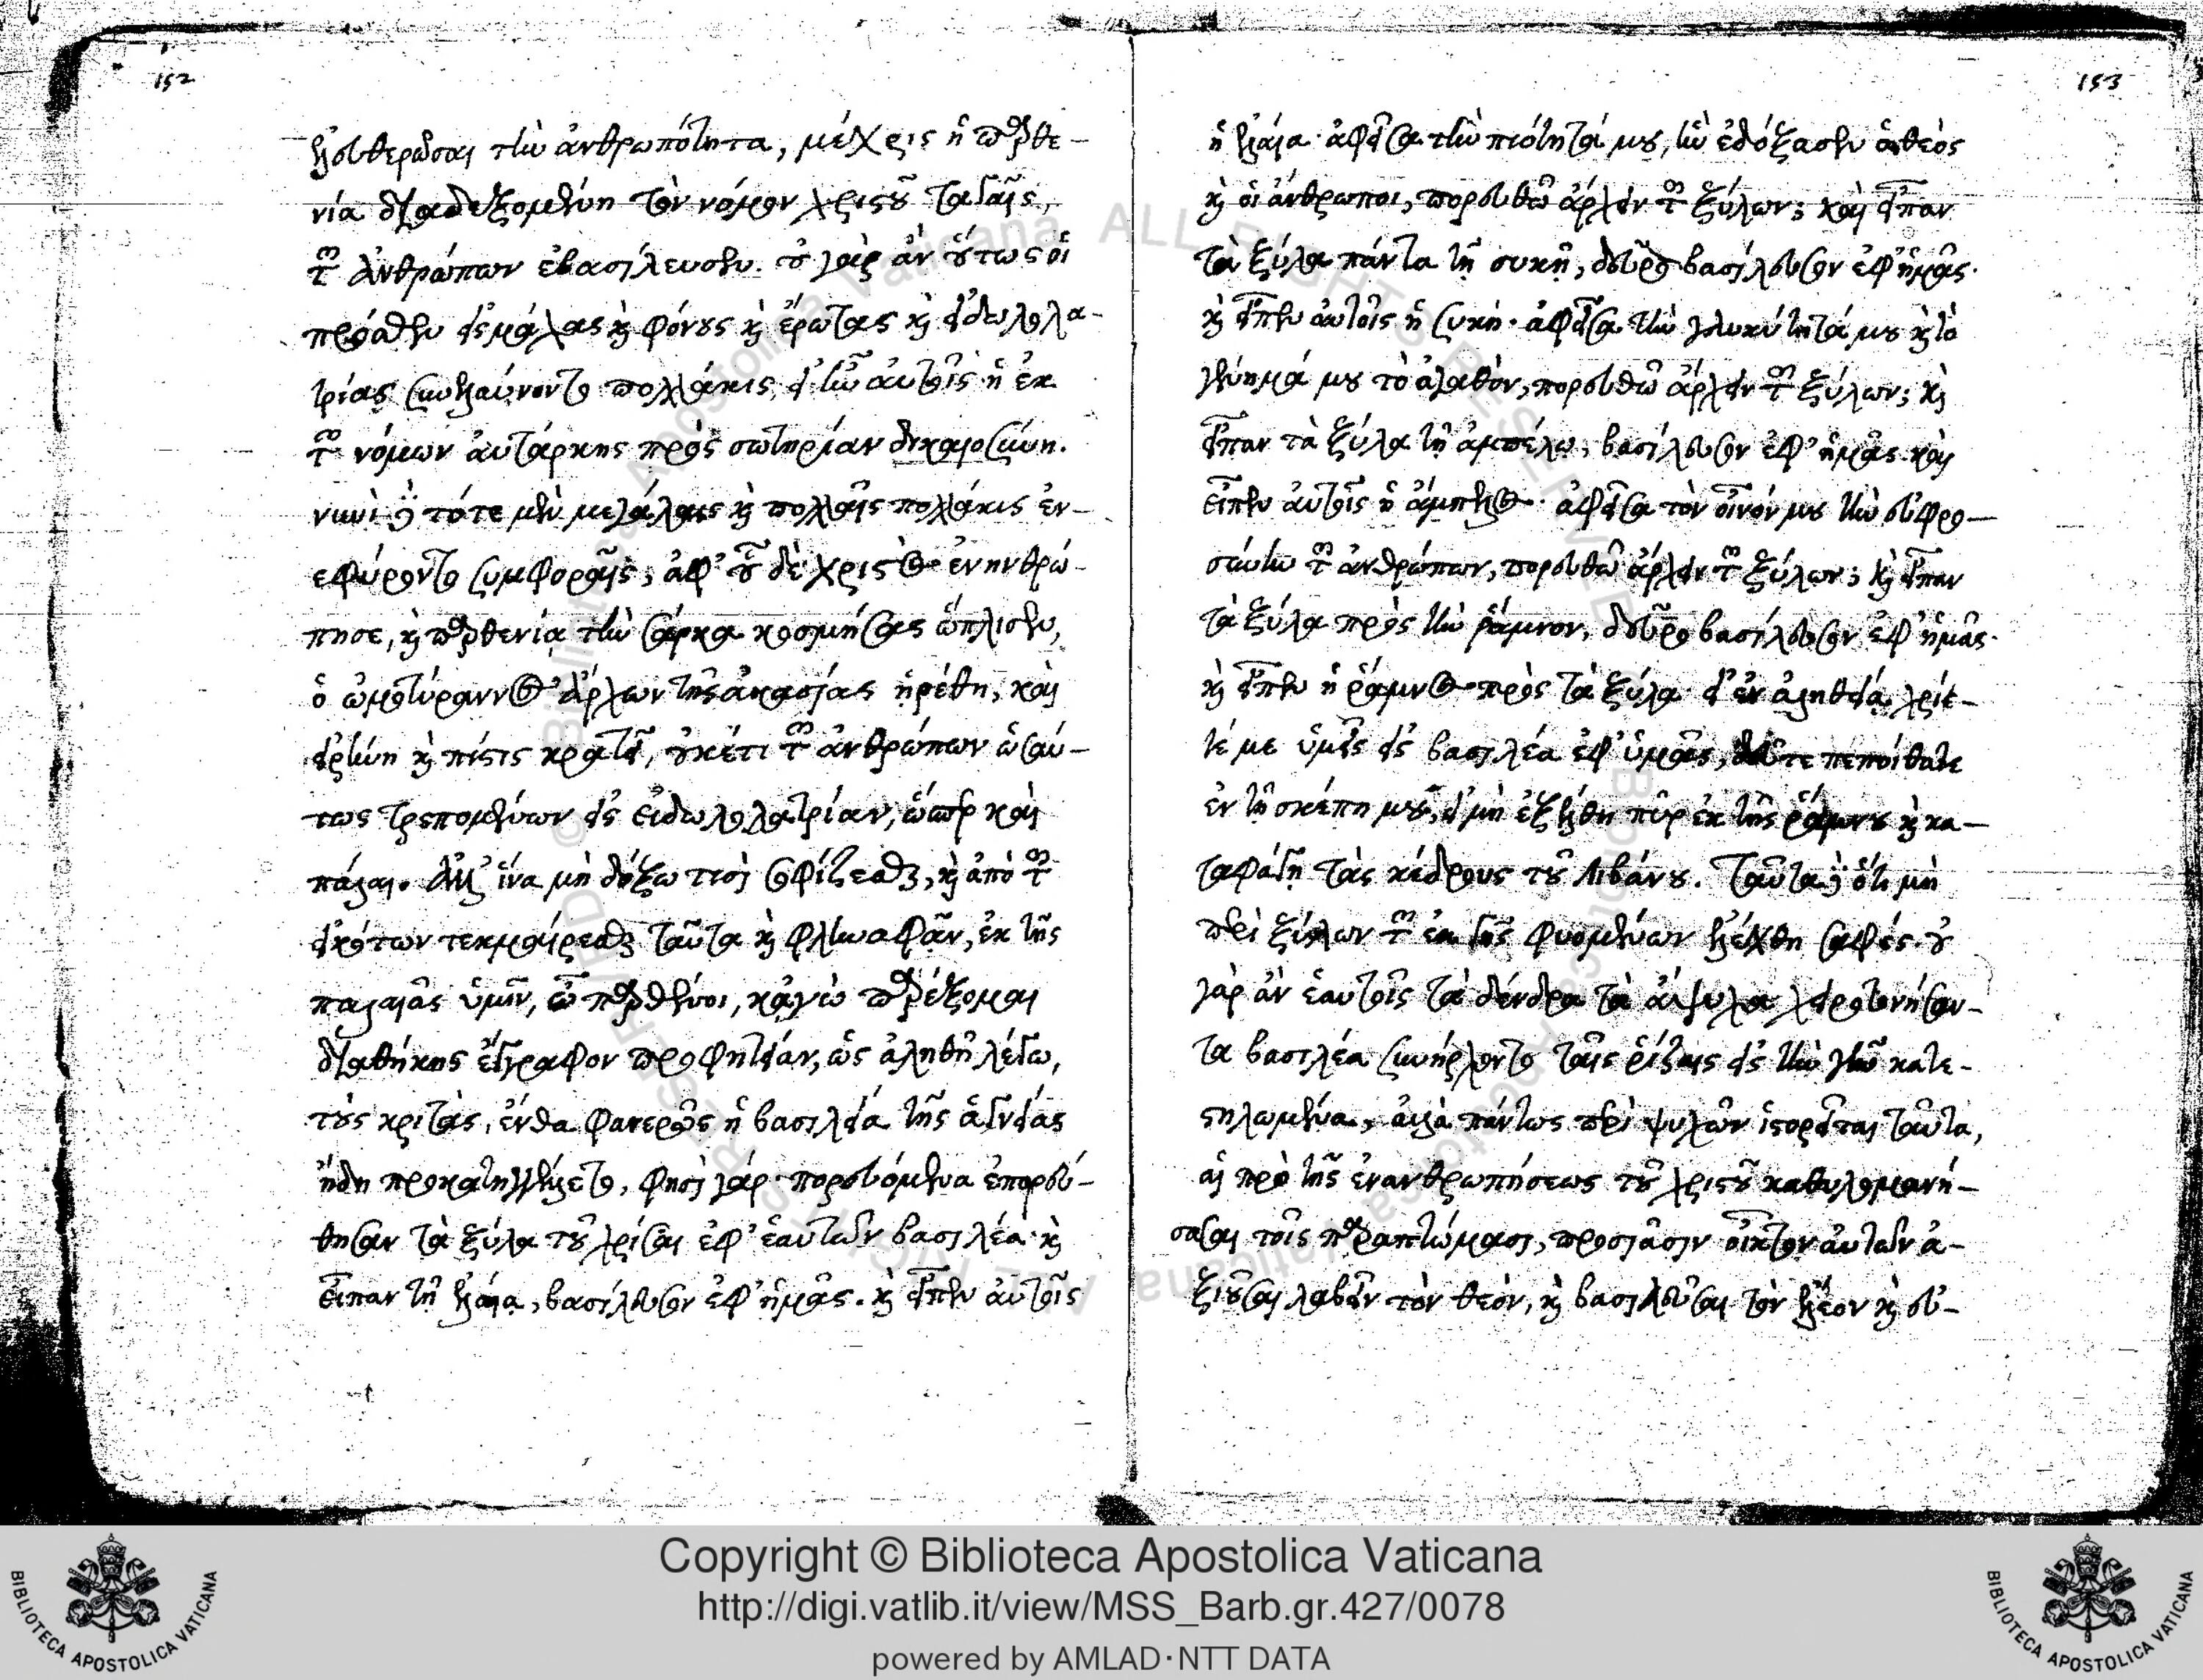 152
ἐλευθερῶσαι τὴν ἀνθρωπότητα, μέχρις ἡ παρθε-
νία διαδεξομένη τὸν νόμον χριστοῦ ταγαῖς,
τῶν ἀνθρώπων ἐβασίλευσεν. οὐ γὰρ ἂν οὕτως οἱ
πρόσθεν εἰς μάχας καὶ φόνους καὶ ἔρωτας καὶ εἰδωλολα-
τρίας συνηλαύνοντο πολλάκις, εἰ ἦν αὐτοῖς ἡ ἐκ
τῶν νόμων αὐτάρκης πρὸς σωτηρίαν δικαιοσύνη.
νυνὶ δὲ τότε μὲν μεγάλαις καὶ πολλαῖς πολλάκις ἐν-
εφύροντο συμφοραῖς, ἀφ' οὗ δὲ χριστὸς ἐνηνθρώ-
πησε, καὶ παρθενίᾳ τὴν σάρκα κοσμήσας ὥπλισεν,
ὁ ὠμοτύραννος ἄρχων τῆς ἀκρασίας ᾑρέθη, καὶ
εἰρήνη καὶ πίστις κρατεῖ, οὐκέτι τῶν ἀνθρώπων ὡσαύ-
τως τρεπομένων εἰς εἰδωλολατρίαν, ὥσπερ καὶ
πάλαι. Ἀλλ' ἵνα μὴ δόξω τισὶ σοφίζεσθαι, καὶ ἀπὸ τῶν
εἰκότων τεκμαίρεσθαι ταῦτα καὶ φληναφᾶν, ἐκ τῆς
παλαιᾶς ὑμῖν, ὦ παρθένοι, κἀγὼ παρέξομαι
διαθήκης ἔγγραφον προφητείαν, ὡς ἀληθῆ λέγω,
τοὺς κριτὰς, ἔνθα φανερῶς ἡ βασιλεία τῆς ἁγνείας
ἤδη προκατηγγέλλετο, φησὶ γάρ· πορευόμενα ἐπορεύ-
θησαν τὰ ξύλα τοῦ χρίσαι ἐφ' ἑαυτῶν βασιλέα· καὶ
εἶπαν τῇ ἐλαίᾳ, βασίλευσον ἐφ' ἡμᾶς. καὶ εἶπεν αὐτοῖς
153
ἡ ἐλαία· ἀφεῖσα τὴν πιότητά μου, ἣν ἐδόξασεν ὁ θεὸς
καὶ οἱ ἄνθρωποι, πορευθῶ ἄρχειν τῶν ξύλων; καὶ εἶπαν
τὰ ξύλα πάντα τῇ συκῇ, δεῦρο βασίλευσον ἐφ' ἡμᾶς·
καὶ εἶπεν αὐτοῖς ἡ συκῆ· ἀφεῖσα τὴν γλυκύτητά μου καὶ τὸ
γέννημά μου τὸ ἀγαθὸν, πορευθῶ ἄρχειν τῶν ξύλων; καὶ
εἶπαν τὰ ξύλα τῇ ἀμπέλῳ, βασίλευσον ἐφ' ἡμᾶς. καὶ
εἶπεν αὐτοῖς ἡ ἄμπελος· ἀφεῖσα τὸν οἶνόν μου τὴν εὐφρο-
σύνην τῶν ἀνθρώπων, πορευθῶ ἄρχειν τῶν ξύλων; καὶ εἶπαν
τὰ ξύλα πρὸς τὴν ῥάμνον, δεῦρο βασίλευσον ἐφ' ἡμᾶς·
καὶ εἶπεν ἡ ῥάμνος πρὸς τὰ ξύλα· εἰ ἐν ἀληθείᾳ χρίε-
τέ με ὑμεῖς εἰς βασιλέα ἐφ' ὑμᾶς, δεῦτε πεποίθατε
ἐν τῇ σκέπῃ μου, εἰ μὴ ἐξέλθῃ πῦρ ἐκ τῆς ῥάμνου καὶ κα-
ταφάγῃ τὰς κέδρους τοῦ Λιβάνου. Ταῦτα δὲ ὅτι μὴ
περὶ ξύλων τῶν ἐκ γῆς φυομένων ἐλέχθη σαφές· οὐ
γὰρ ἂν ἑαυτοῖς τὰ δένδρα τὰ ἄψυχα χειροτονήσαν-
τα βασιλέα συνήρχοντο ταῖς ῥίζαις εἰς τὴν γῆν κατε-
στηλωμένα, ἀλλὰ πάντως περὶ ψυχῶν ἱστορεῖται ταῦτα,
αἳ πρὸ τῆς ἐνανθρωπήσεως τοῦ χριστοῦ καθυλομανή-
σασαι τοῖς παραπτώμασι, προσιᾶσιν οἶκτον αὐτῶν ἀ-
ξιοῦσαι λαβεῖν τὸν θεὸν, καὶ βασιλεῦσαι τὸν ἔλεον καὶ εὐ-
Copyright © Biblioteca Apostolica Vaticana
http://digi.vatlib.it/view/MSS_Barb.gr.427/0078
powered by AMLAD·NTT DATA
BIBLIOTECA APOSTOLICA VATICANA
BIBLIOTECA APOSTOLICA VATICANA